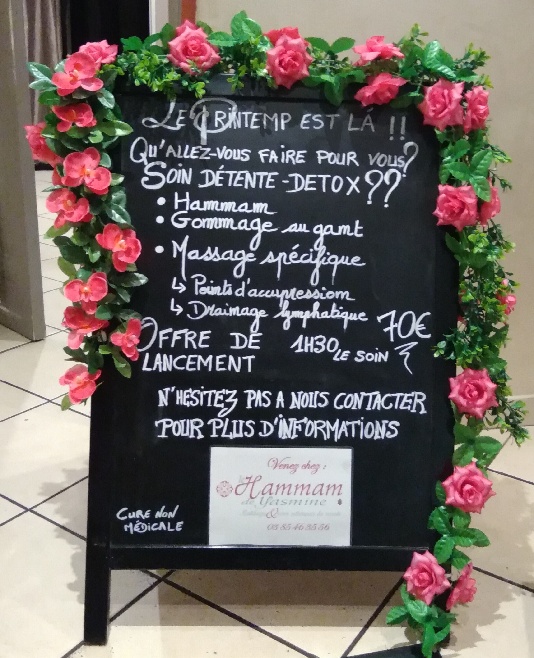 Le Printemp est là !!
Qu'allez-vous faire pour vous?
Soin détente-detox??
• Hammam
• Gommage au gant
• Massage spécifique
↳ Points d'accupression
↳ Drainage lymphatique
Offre de lancement
1H30 le soin
70€
N'hesitez pas a nous contacter
pour plus d'informations
Venez chez :
le Hammam
de Yasmine
&
Cure non
médicale